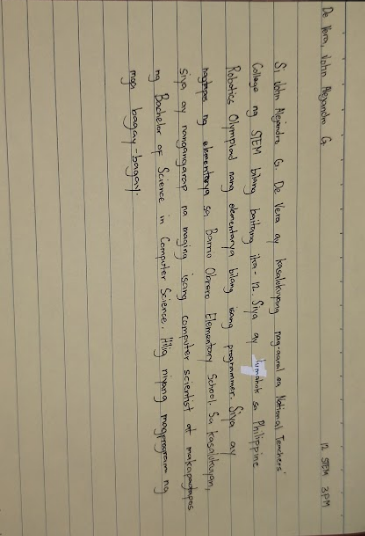 De Vera, Jotin Alejandro G. 12 STEM 3PM
Si Jotin Alejandro G. De Vera ay kasalukuyang nag-aaral sa National Teachers'
College ng STEM bilang baitang ika-12. Siya ay lumahok sa Philippine
Robotics Olympiad nang elementarya bilang isang programmer. Siya ay
nagtapos ng elementarya sa Barrio Obrero Elementary School. Sa kasalukuyan,
siya ay nangangarap na maging isang computer scientist at makapagtapos
ng Bachelor of Science in Computer Science. Hilig niyang magprogram ng
mga bagay-bagay.